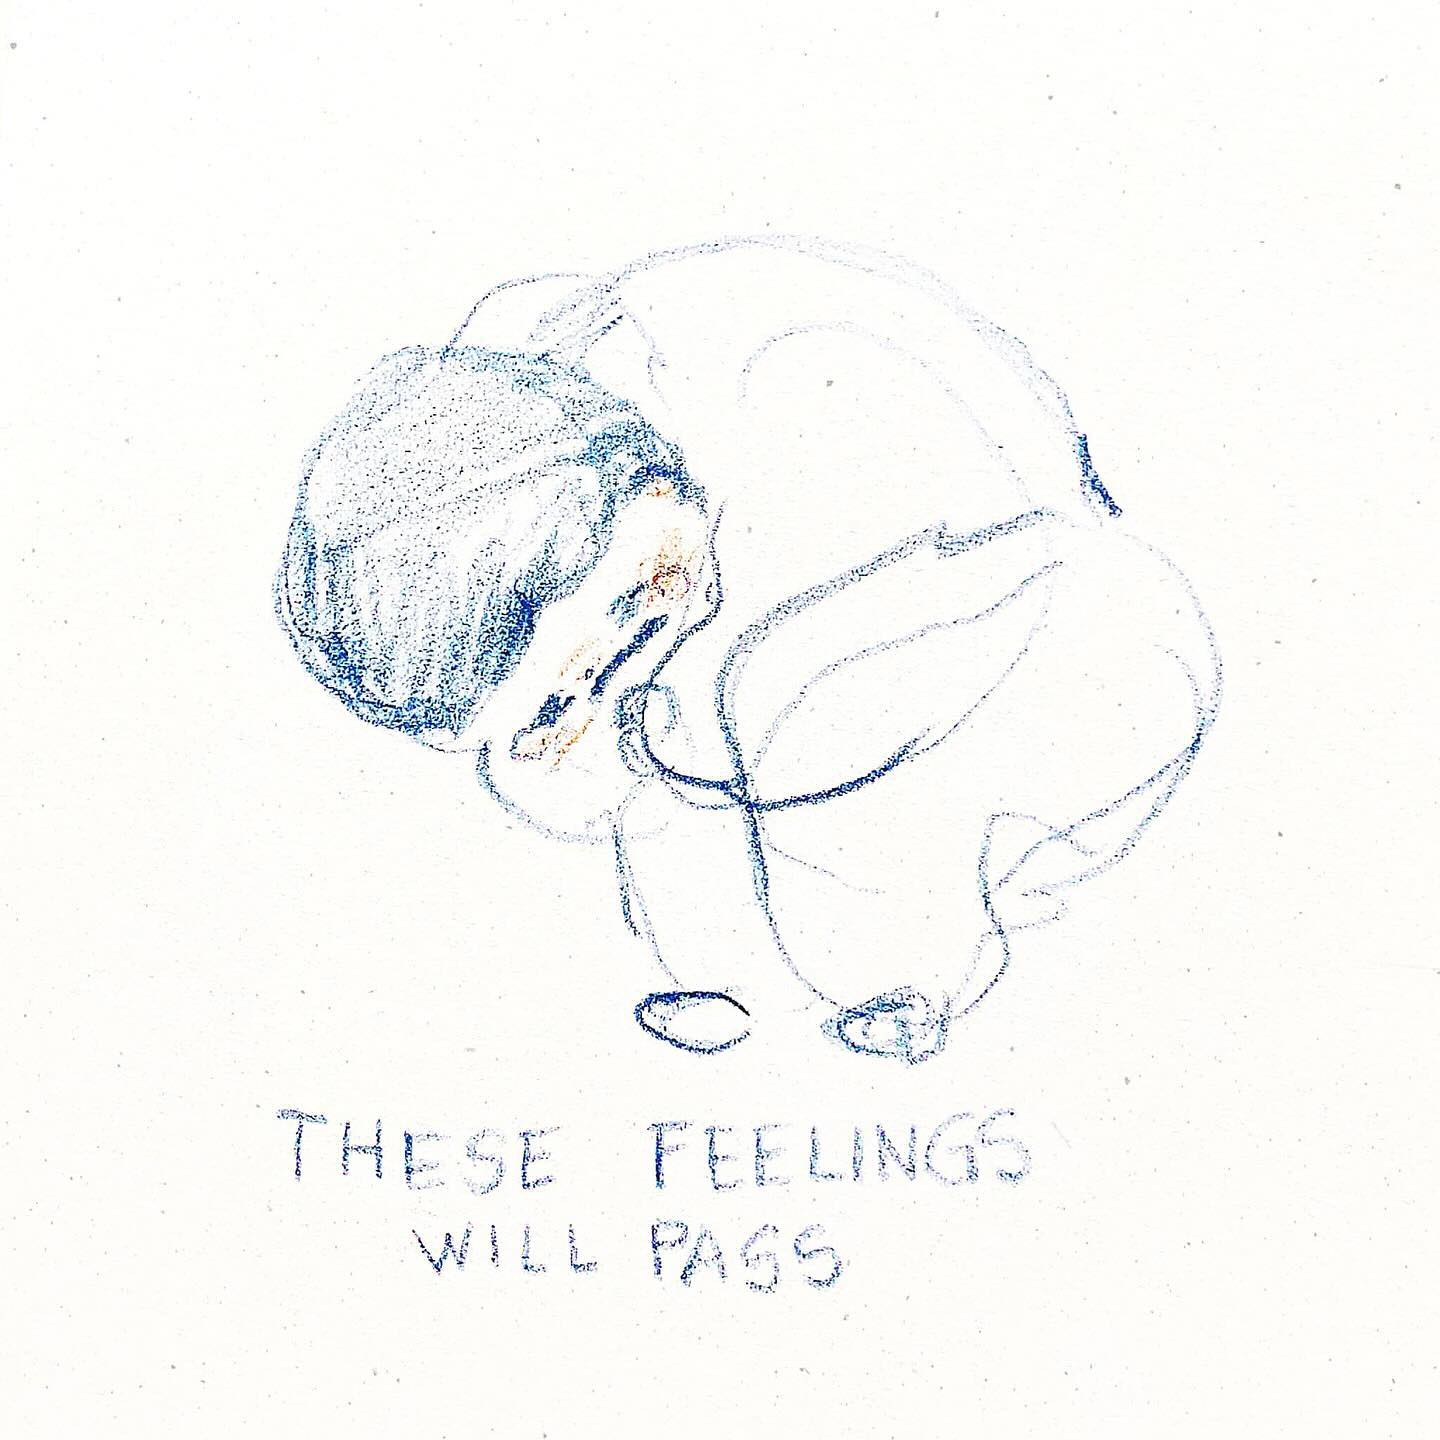 THESE FEELINGS
WILL PASS